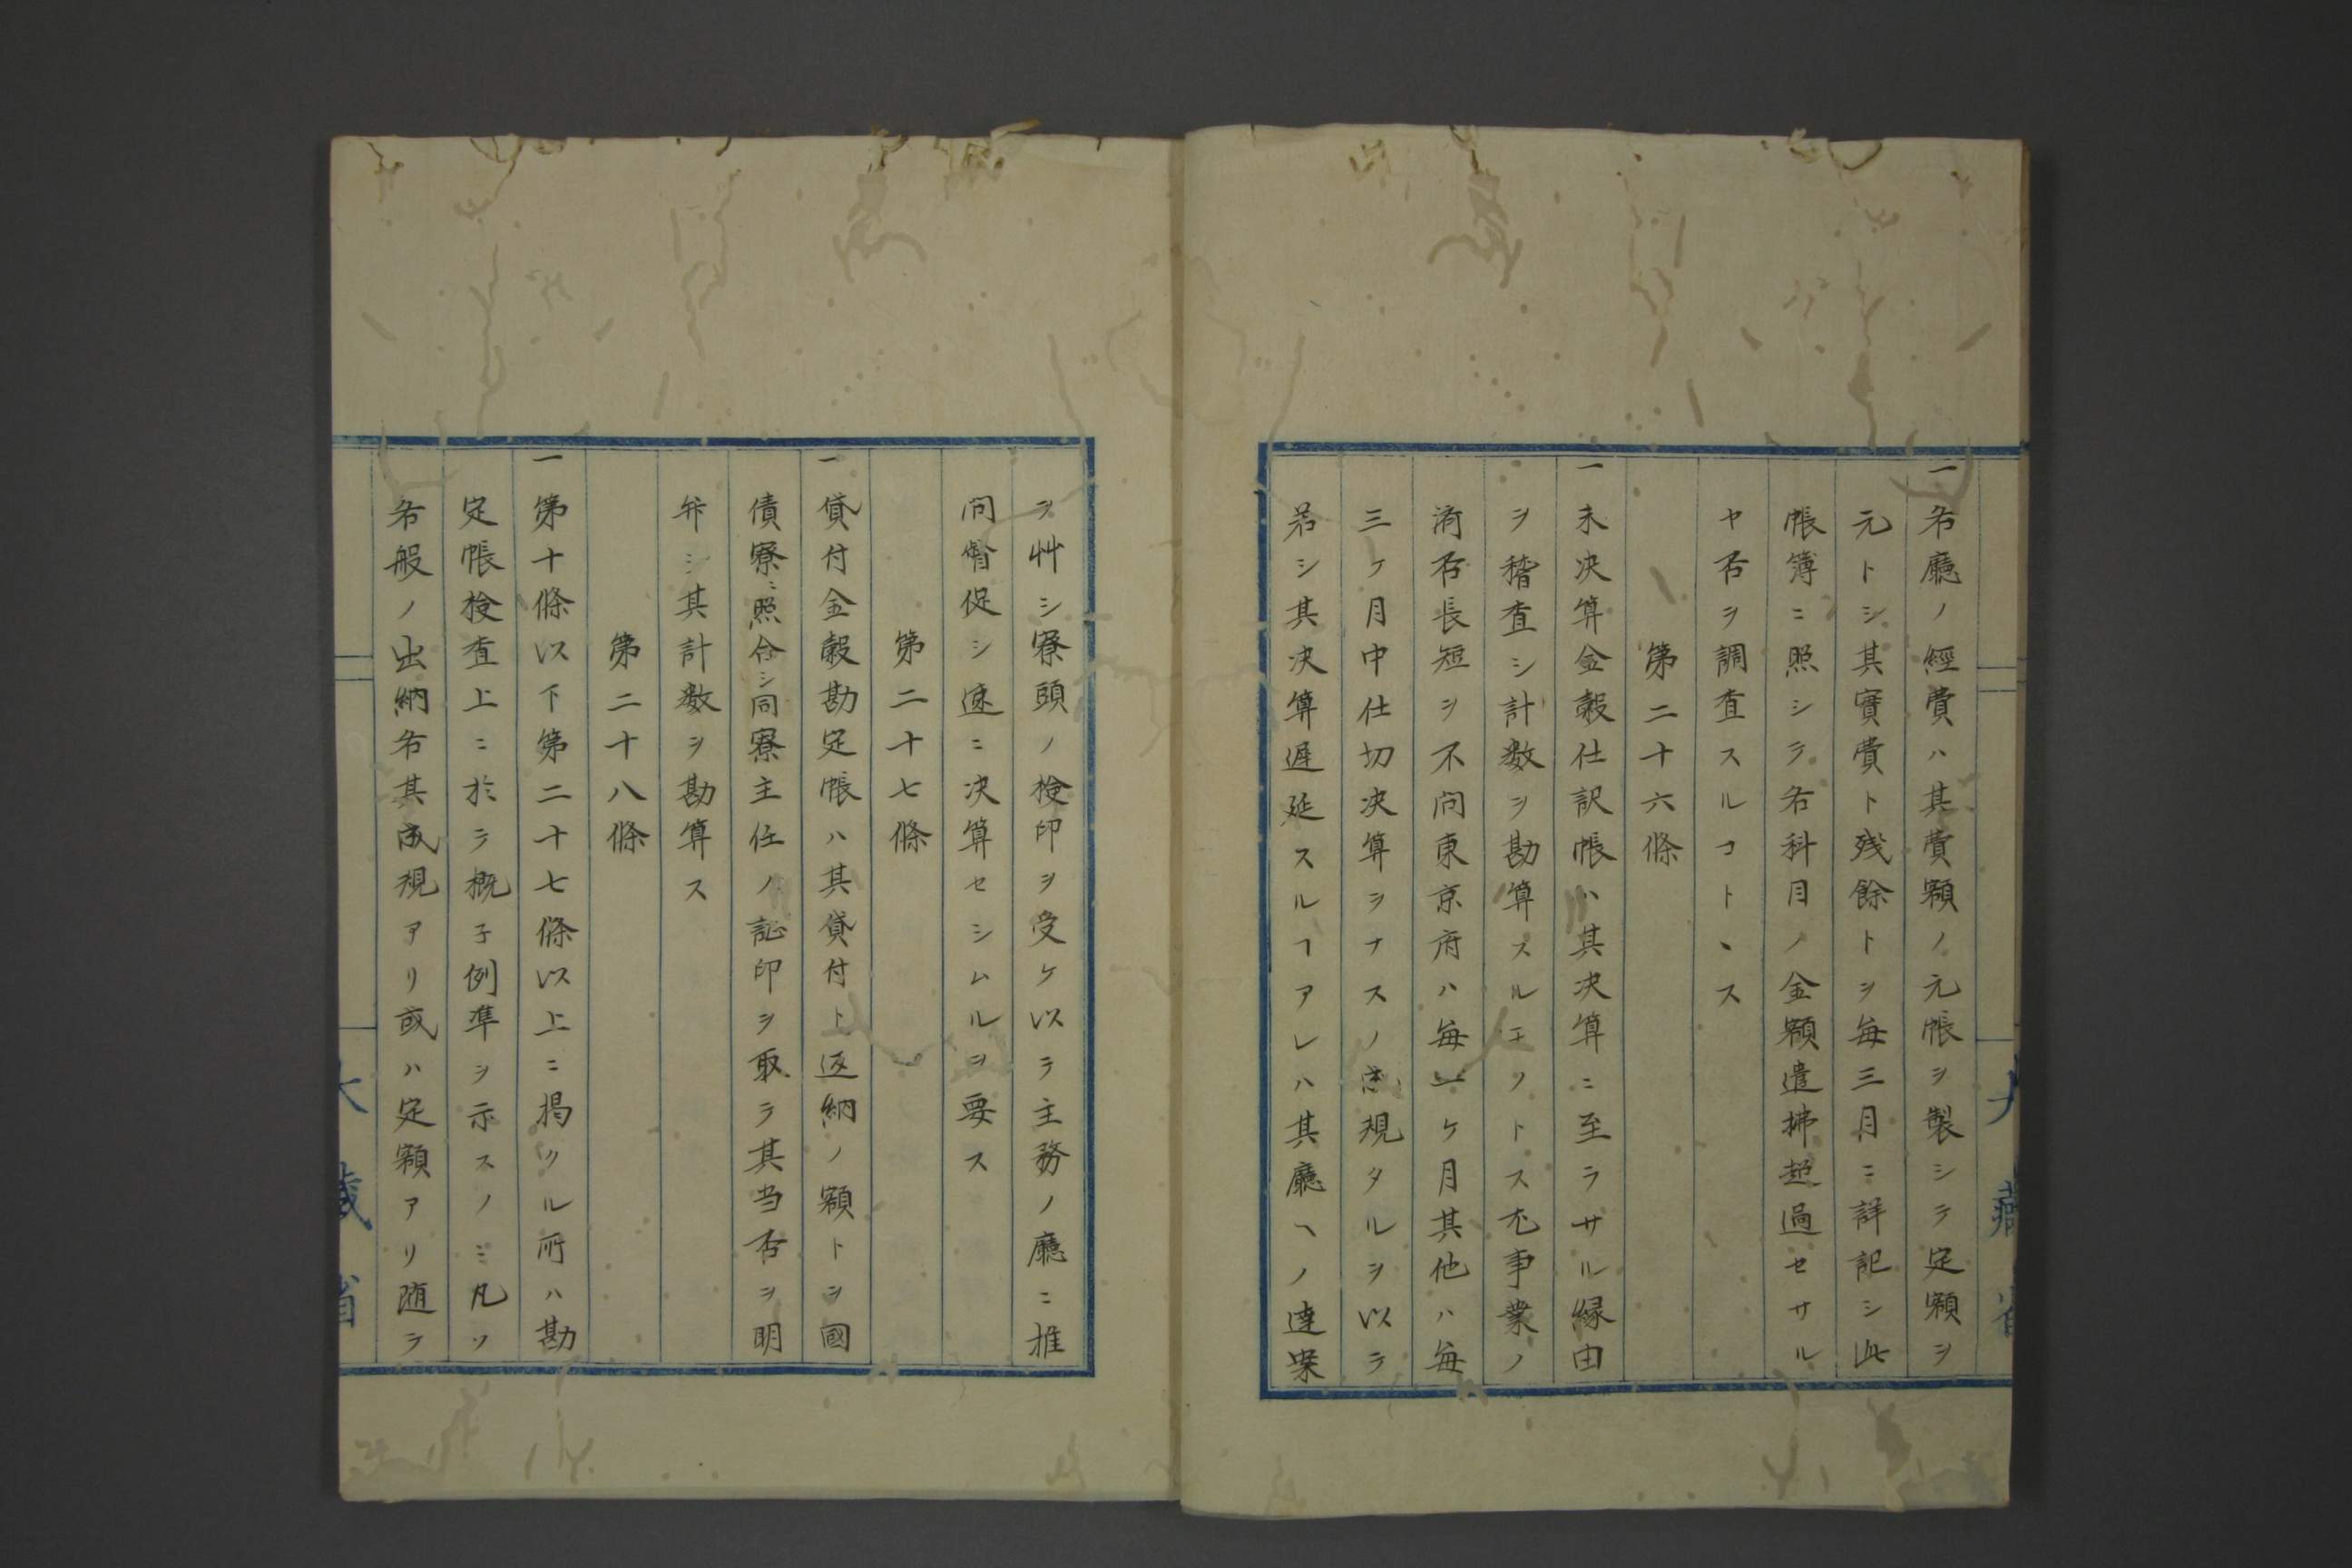 大藏省
一各廳ノ經費ハ其費額ノ元帳ヲ製シテ定額ヲ
元トシ其實費ト残餘トヲ毎三月ニ詳記シ此
帳簿ニ照シテ各科目ノ金額遣拂超過セサル
ヤ否ヲ調査スルコトヽス
第二十六條
一未决算金穀仕訳帳ハ其决算ニ至ラサル縁由
ヲ稽査シ計数ヲ勘算スルモノトス尤事業ノ
済否長短ヲ不問東京府ハ毎一ケ月其他ハ毎
三ケ月中仕切决算ヲナスノ規タルヲ以テ
若シ其决算遅延スルヿアレハ其廳ヘノ達案
ヲ艸シ寮頭ノ検印ヲ受ケ以テ主務ノ廳ニ推
問督促シ速ニ决算セシムルヲ要ス
第二十七條
一貸付金穀勘定帳ハ其貸付ト返納ノ額トヲ國
債寮ニ照合シ同寮主任ノ証印ヲ取テ其当否ヲ明
弁シ其計数ヲ勘算ス
第二十八條
一第十條以下第二十七條以上ニ掲クル所ハ勘
定帳検査上ニ於テ概子例準ヲ示スノミ凡ソ
各般ノ出納各其成規アリ或ハ定額アリ随テ
大藏省